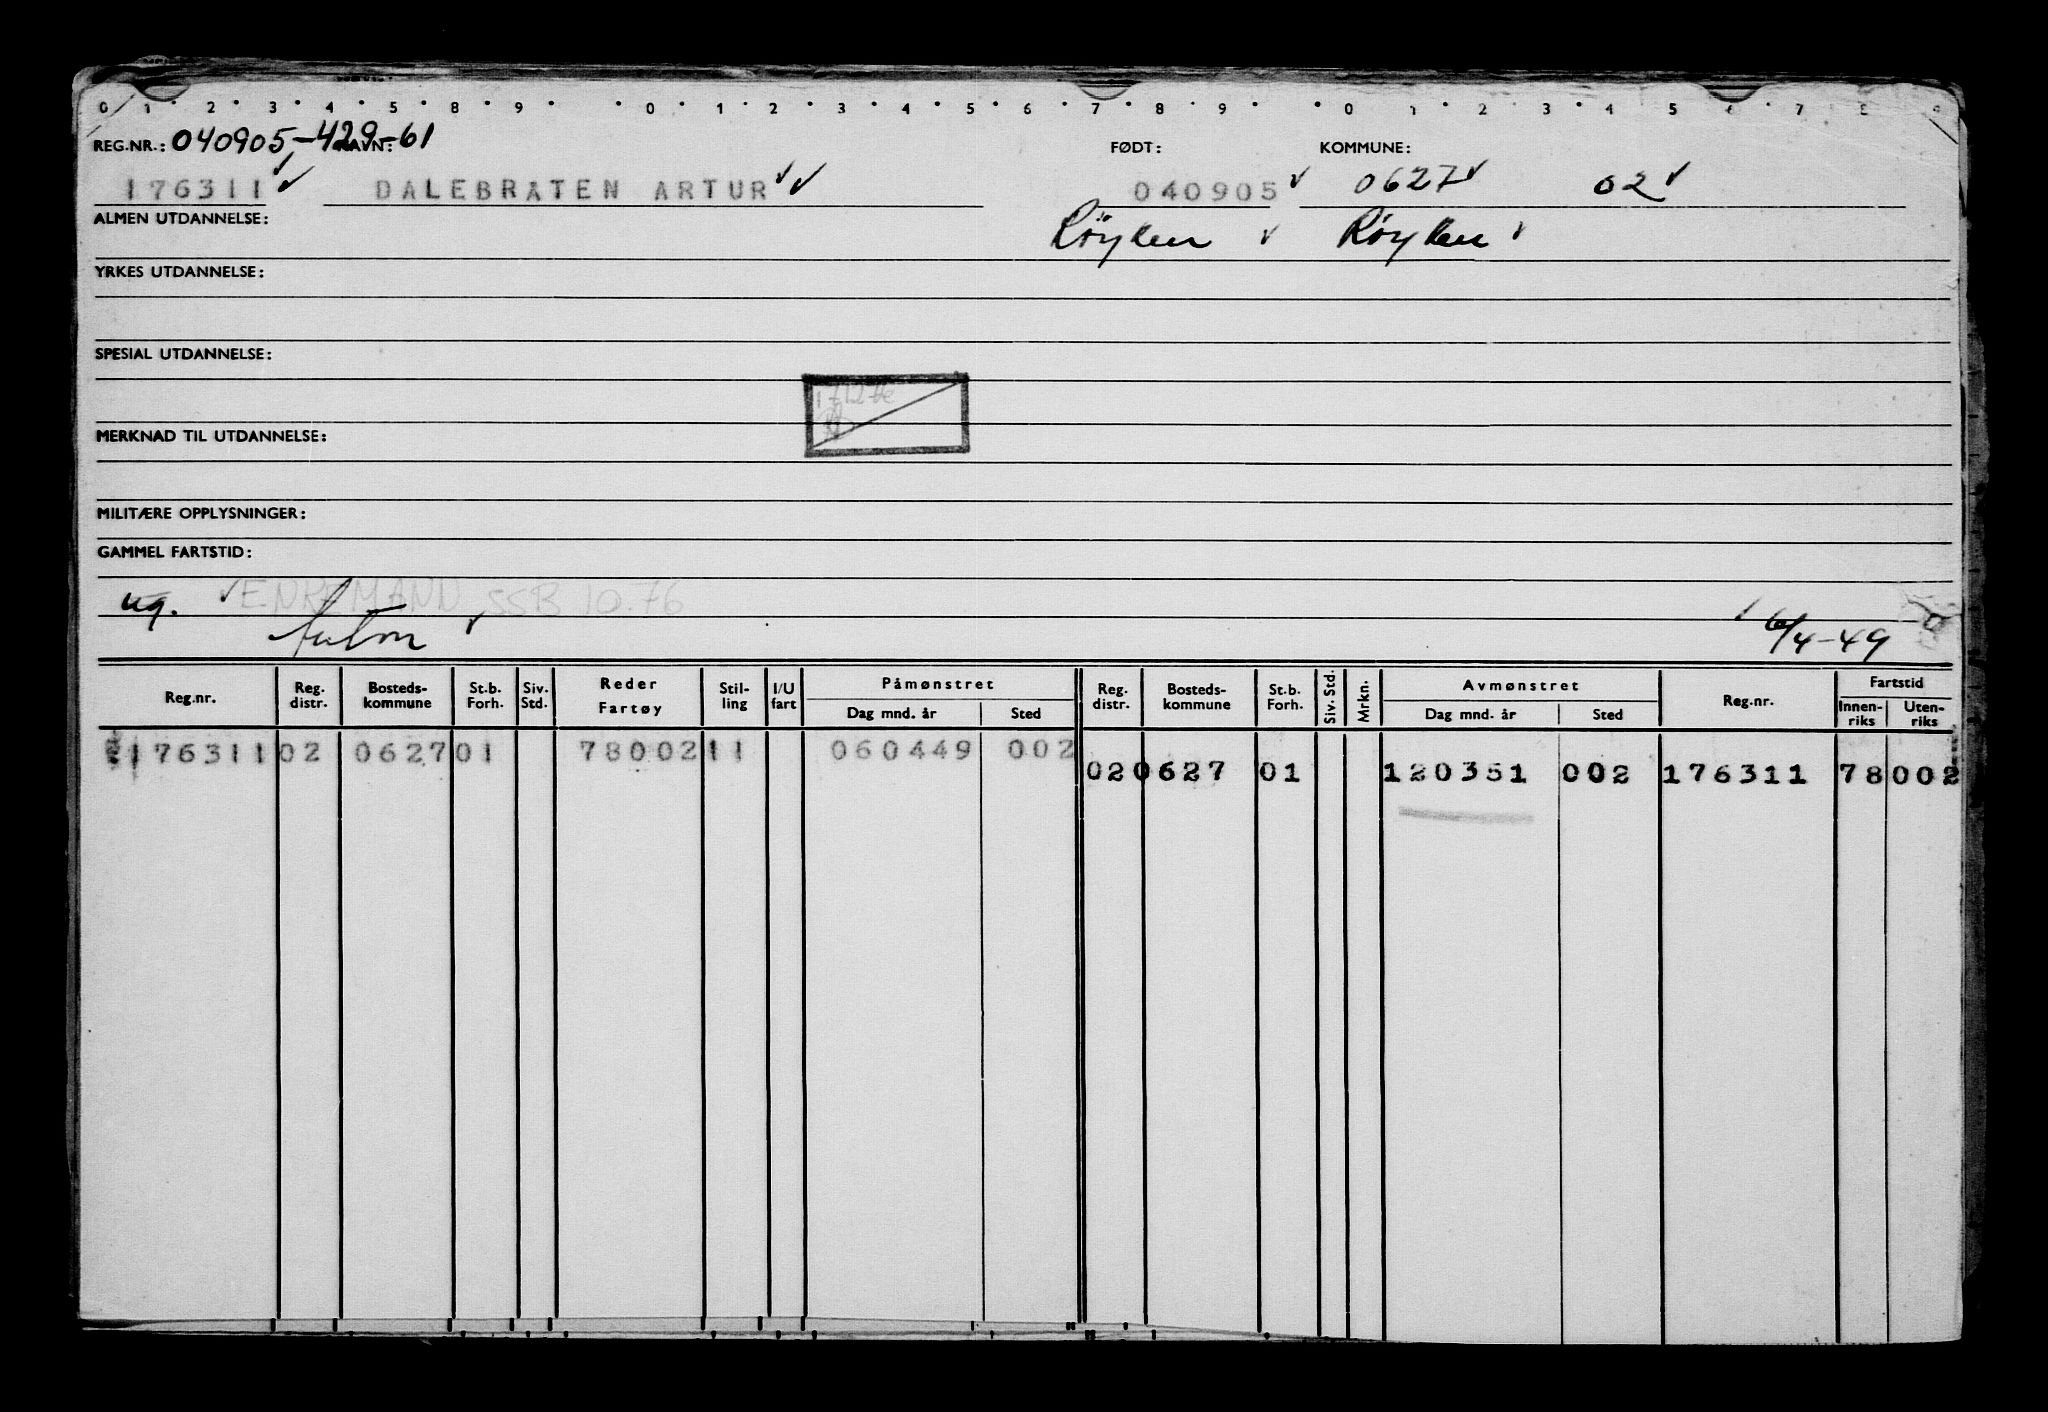 0 1 2 3 4 5 8 9 0 1 2 3 4 5 6 7 8 9 0 1 2 3 4 5 6 7 8 9
REG.NR.: 040905-429-61 NAVN: FØDT: KOMMUNE:
176311 DALEBRATEN ARTUR 040905 0627 02
ALMEN UTDANNELSE: Röyken Röyken
YRKES UTDANNELSE:
SPESIAL UTDANNELSE:
MERKNAD TIL UTDANNELSE:
MILITÆRE OPPLYSNINGER:
GAMMEL FARTSTID:
ug. ENKEMANN SSB 10.76
6/4-49
Reg.nr. Reg. distr. Bosteds-kommune St.b. Forh. Siv. Std. Reder Fartøy Stil-ling I/U fart Påmønstret Dag mnd. år Sted Reg. distr. Bosteds-kommune St.b. Forh. Siv. Std. Mrkn. Avmønstret Dag mnd. år Sted Reg.nr. Fartstid Innen-riks Uten-riks
176311 02 0627 01 78002 11 060449 002
02 0627 01 120351 002 176311 78 002